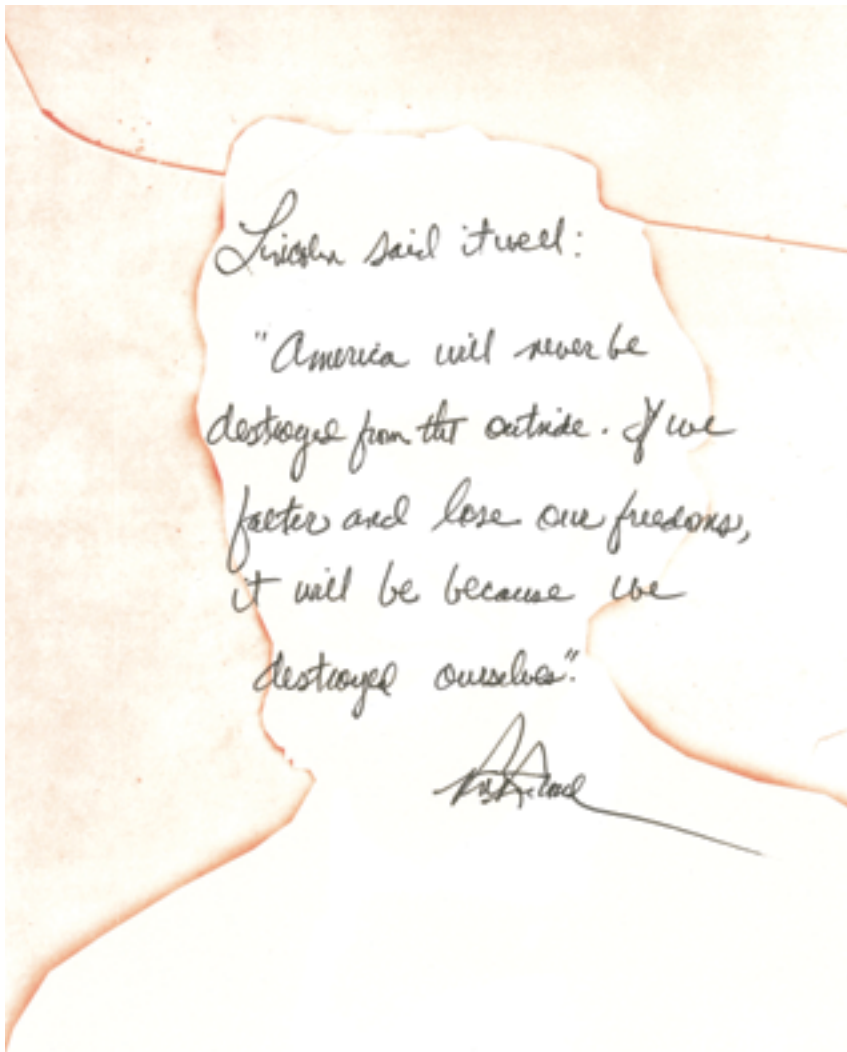 Lincoln said it well:
"America will never be
destroyed from the outside. If we
falter and lose our freedoms,
it will be because we
destroyed ourselves".